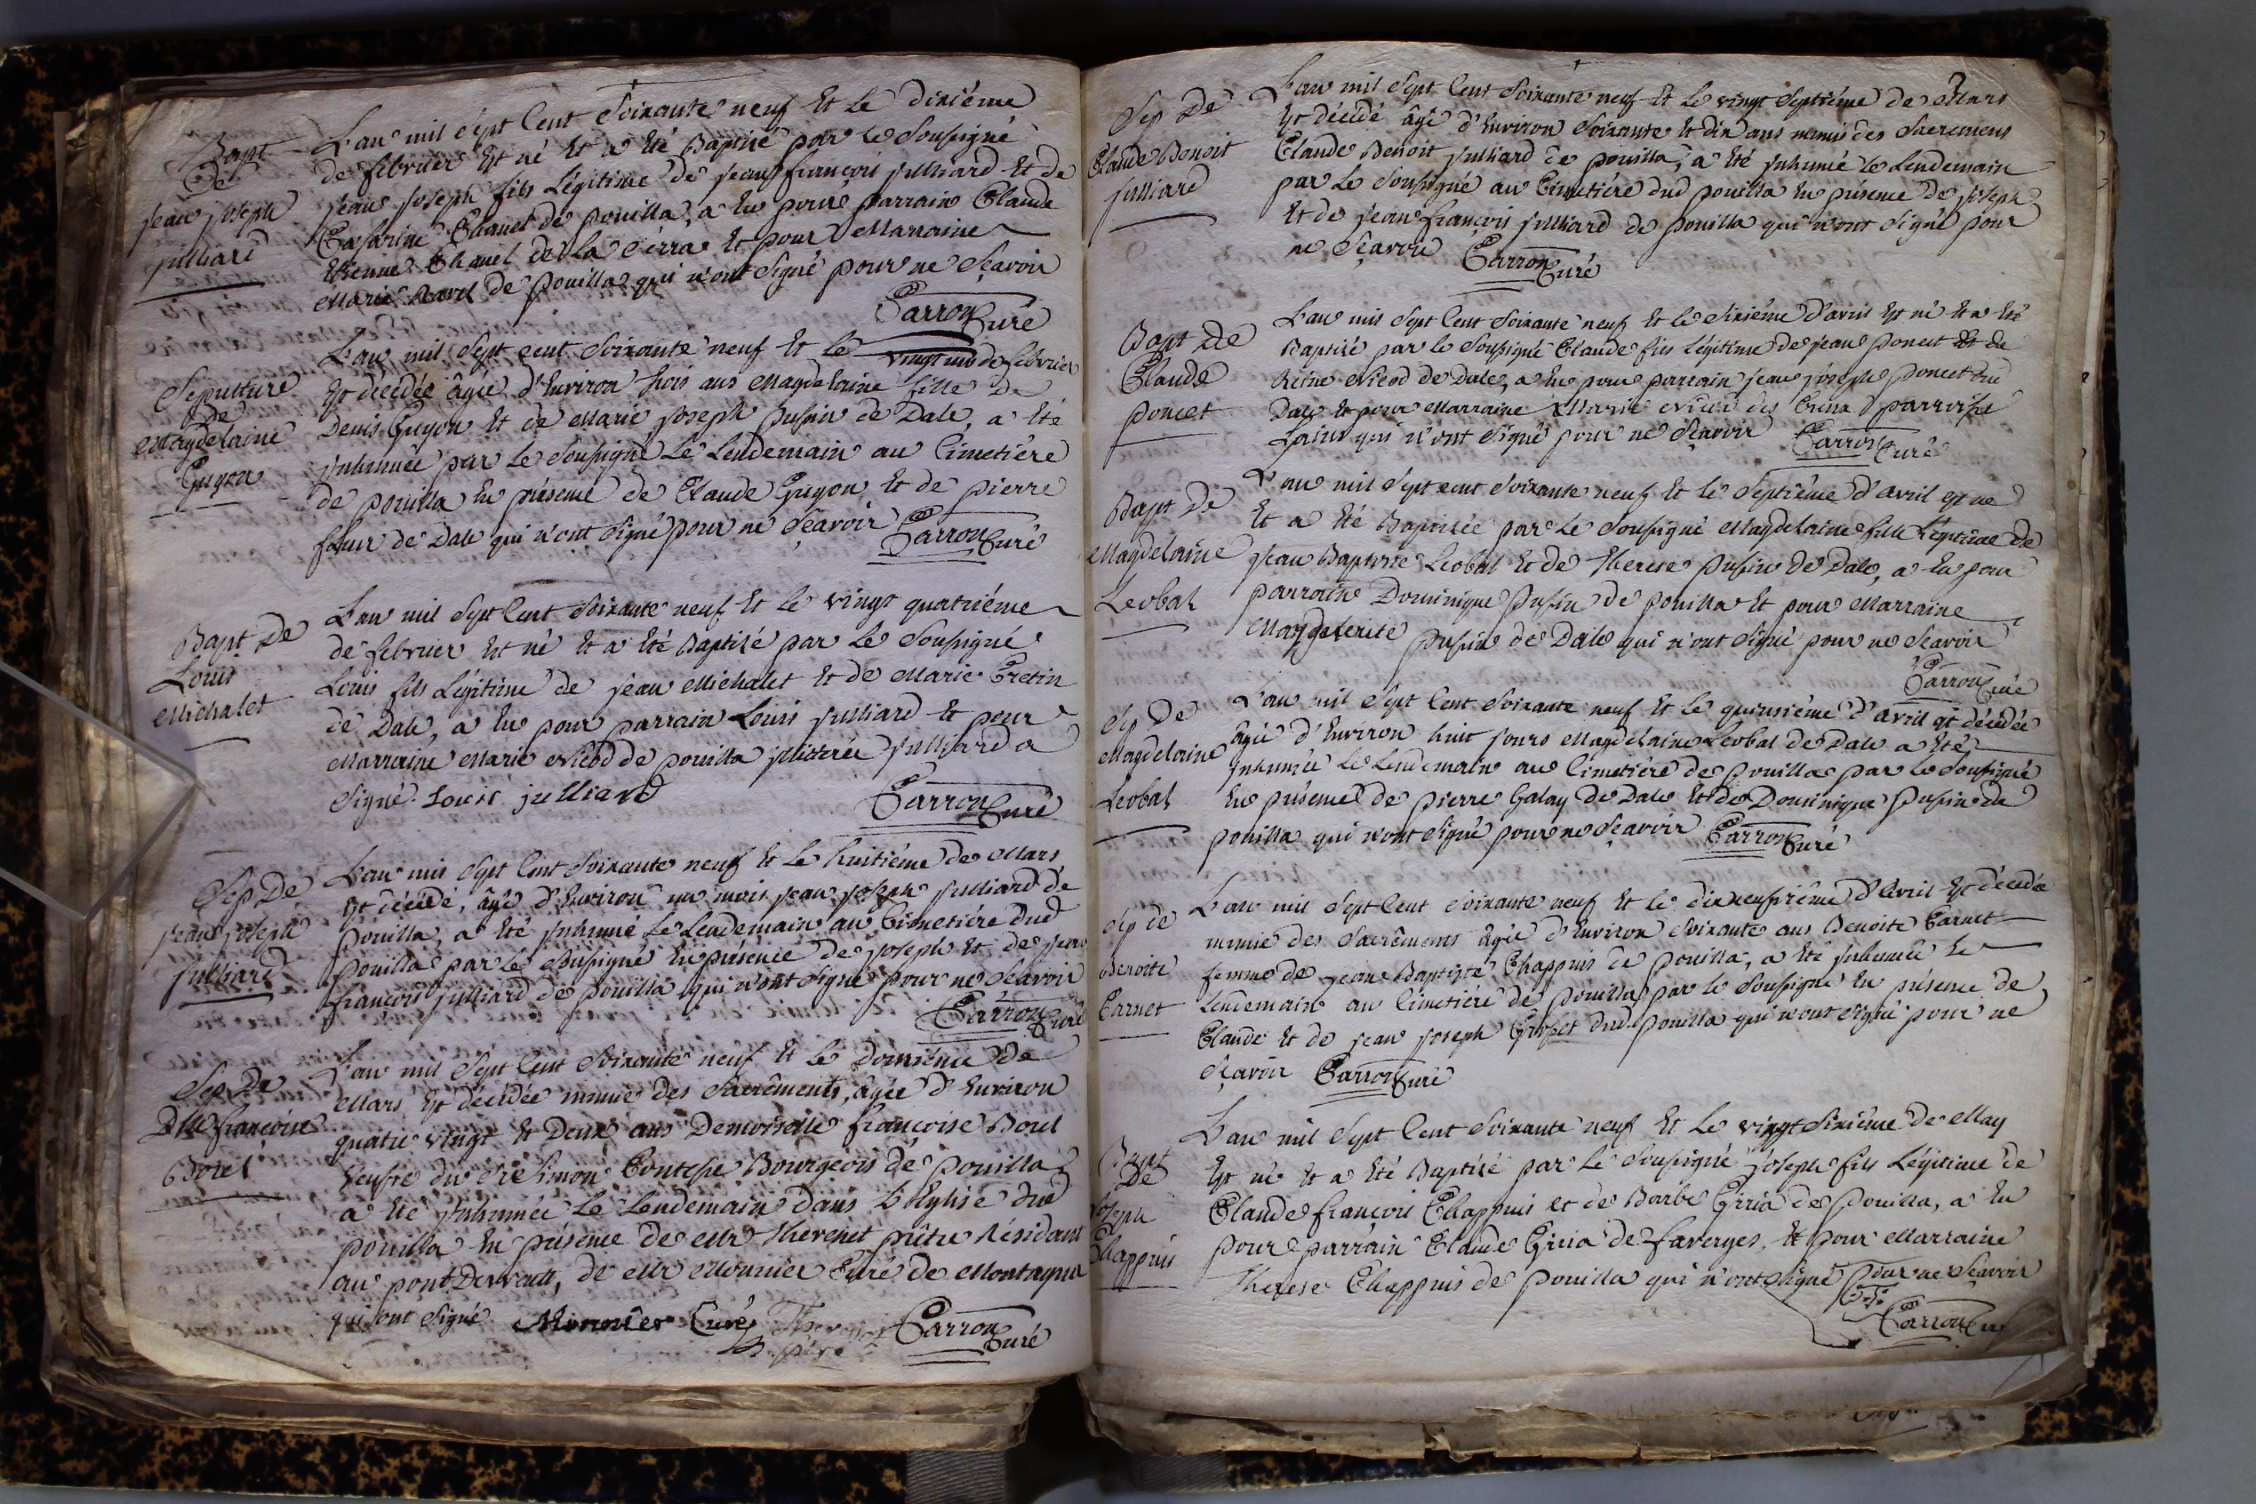 Bapt
De
jean joseph
julliard
L'an mil sept Cent soixante neuf Et le dixiéme
de febvrier Est né Et a Eté Baptisé par le soussigné
jean joseph fils Légitime de jean françois julliard Et de
Catarine Chanel de pouilla, a Eu pour parrain Claude
Etienne Chanel de La Serra Et pour Marraine
Marie Ravel de pouilla qui n'ont signé pour ne sçavoir
Carron Curé
Sepulture
de
Magdelaine
Guyon
L'an mil sept cent soixante neuf Et le vingt un de febvrier
Est décédée âgée d'Environ trois ans Magdelaine fille de
Denis Guyon Et de Marie joseph pupin de Dale, a Eté
inhumée par le soussigné Le Lendemain au Cimetiére
de pouilla En présence de Claude Guyon Et de pierre
de Dale qui n'ont signé pour ne sçavoir Carron Curé
Bapt De
Louis
Michalet
L'an mil sept Cent soixante neuf Et le vingt quatriéme
de febvrier Est né Et a Eté Baptisé par Le soussigné
Louis fils Légitime de jean Michalet Et de Marie Cretin
de Dale, a Eu pour parrain Louis julliard Et pour
Marraine Marie Nicod de pouilla illitérée julliard a
signé. Louis julliard Carron Curé
Sep De
jean joseph
julliard
L'an mil sept Cent soixante neuf Et le huitiéme de Mars
Est décédé, âgé d'Environ un mois jean joseph julliard de
pouilla, a Eté inhumé Le Lendemain au Cimetiére dud
pouilla par le soussigné En présence de joseph Et de jean
françois julliard de pouilla qui n'ont signé pour ne sçavoir
Carron Curé
Sep De
Dlle françoise
Borel
L'an mil sept Cent soixante neuf Et le douziéme de
Mars Est décédée munie des Sacrêments, âgée d'Environ
quatre vingt Et Deux ans Demoiselle françoise Borel
veufve du Sr Simon Contesse Bourgeois de pouilla
a Eté inhumée Le Lendemain dans L'Eglise dud
pouilla En présence de Mr Thevenet prêtre Résidant
au pont Dervault, de Mr Monnier Curé de Montagna
qui ont signé Monnier Curé Thevenet Carron Curé
Sep De
Claude Benoit
julliard
L'an mil sept Cent soixante neuf Et le vingt septiéme de Mars
Est décédé âgé d'Environ soixante Et dix ans munis des sacremens
Claude Benoit julliard de pouilla, a Eté inhumé le Lendemain
par Le soussigné au Cimetiére dud pouilla En présence de joseph
Et de jean françois julliard de pouilla qui n'ont signé pour
ne sçavoir Carron Curé
Bapt De
Claude
poncet
L'an mil sept Cent soixante neuf Et le sixiéme d'avril Est né Et a Eté
Baptisé par le soussigné Claude fils Légitime de jean poncet Et de
Reine Nicod de Dale, a Eu pour parrain jean joseph poncet dud
Dale Et pour Marraine Marie Nicod des Crena parroisse
qui n'ont signé pour ne sçavoir Carron Curé
Bapt De
Magdelaine
Leobal
L'an mil sept cent soixante neuf Et le septiéme d'avril Est née
Et a Eté Baptisée par Le soussigné Magdelaine fille Légitime de
jean Baptiste Leobal Et de Therese pupin de Dale, a Eu pour
parrain Dominique pupin de pouilla Et pour Marraine
pupin de Dale qui n'ont signé pour ne sçavoir
Carron Curé
Sep De
Magdelaine
Leobal
L'an mil sept Cent soixante neuf Et le quinziéme d'avril Est décédée
âgée d'Environ huit jours Magdelaine Leobal de Dale a Eté
inhumée Le Lendemain au Cimetiére de pouilla par Le soussigné
En présence de pierre Galay de Dale Et de Dominique pupin de
pouilla qui n'ont signé pour ne sçavoir Carron Curé
Sep de
Benoite
Carnet
L'an mil sept Cent soixante neuf Et le dixneufviéme d'avril Est décédée
munie des Sacrêments âgée d'Environ soixante ans Benoite Carnet
femme de jean Baptiste Chappuis de pouilla, a Eté inhumée Le
Lendemain au Cimetiére de pouilla par le soussigné En présence de
Claude Et de jean joseph Grosset dud pouilla qui n'ont signé pour ne
sçavoir Carron Curé
Bapt
De
joseph
Chappuis
L'an mil sept Cent soixante neuf Et Le vingt sixiéme de May
Est né Et a Eté Baptisé par Le soussigné joseph fils Légitime de
Claude françois Chappuis et de Barbe Giria de pouilla, a Eu
pour parrain Claude Giria de faverges, Et pour Marraine
Therese Chappuis de pouilla qui n'ont signé pour ne sçavoir
Carron Curé